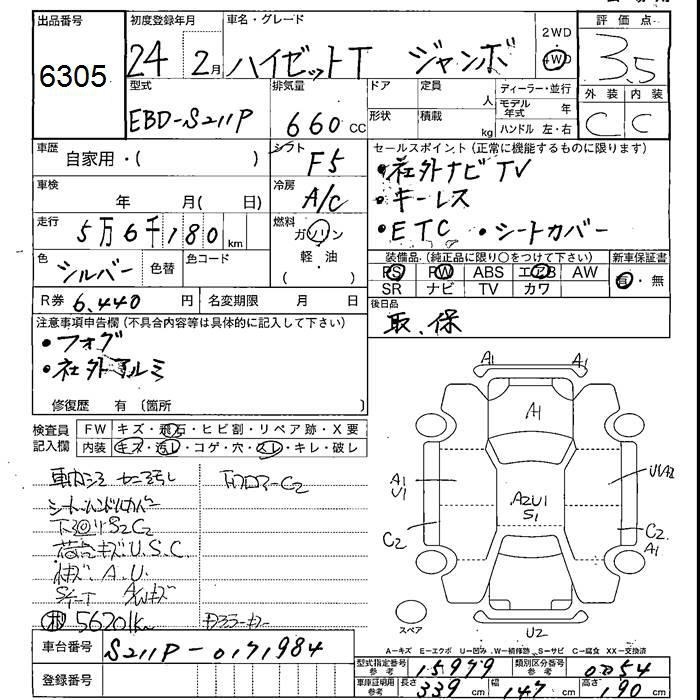 出品番号 6305
初度登録年月 24 2月
車名・グレード ハイゼットT ジャンボ
2WD
4WD
評価点 3.5
型式 EBD-S211P
排気量 660 cc
ドア 形状
定員 人
積載 kg
ディーラー・並行
モデル年式 年
ハンドル 左・右
外装 C 内装 C
車歴 自家用・( )
シフト F5
セールスポイント(正常に機能するものに限ります)
・社外ナビ TV
・キーレス
・ETC ・シートカバー
車検 年 月( 日)
冷房 A/C
走行 5万6千180 km
燃料 ガソリン
軽・油
( )
色 シルバー 色替 色コード
装備品(純正品に限り○をつけて下さい) 新車保証書
PS PW ABS エアB AW 有・無
SR ナビ TV カワ
R券 6,440 円 名変期限 月 日
後日品
取.保
注意事項申告欄(不具合内容等は具体的に記入して下さい)
・フォグ
・社外アルミ
修復歴 有(箇所 )
検査員記入欄
FW キズ・飛石・ヒビ割・リペア跡・X要
内装 キズ・汚レ・コゲ・穴・スレ・キレ・破レ
シートハンドルカバー
荷台キズ.U.S.C.
A.U.
56201km
車台番号 S211P-0171984
登録番号
A1 A1
A1
A1 U1
A2U1
S1
U1A2
C2
C2
A1
スペア
U2
A-キズ E-エクボ U-凹ミ W-補修跡 S-サビ C-腐食 XX-交換済
型式指定番号 参考 15979 類別区分番号 参考 0054
車庫証明用 参考 長さ 339 cm 幅 147 cm 高さ 190 cm